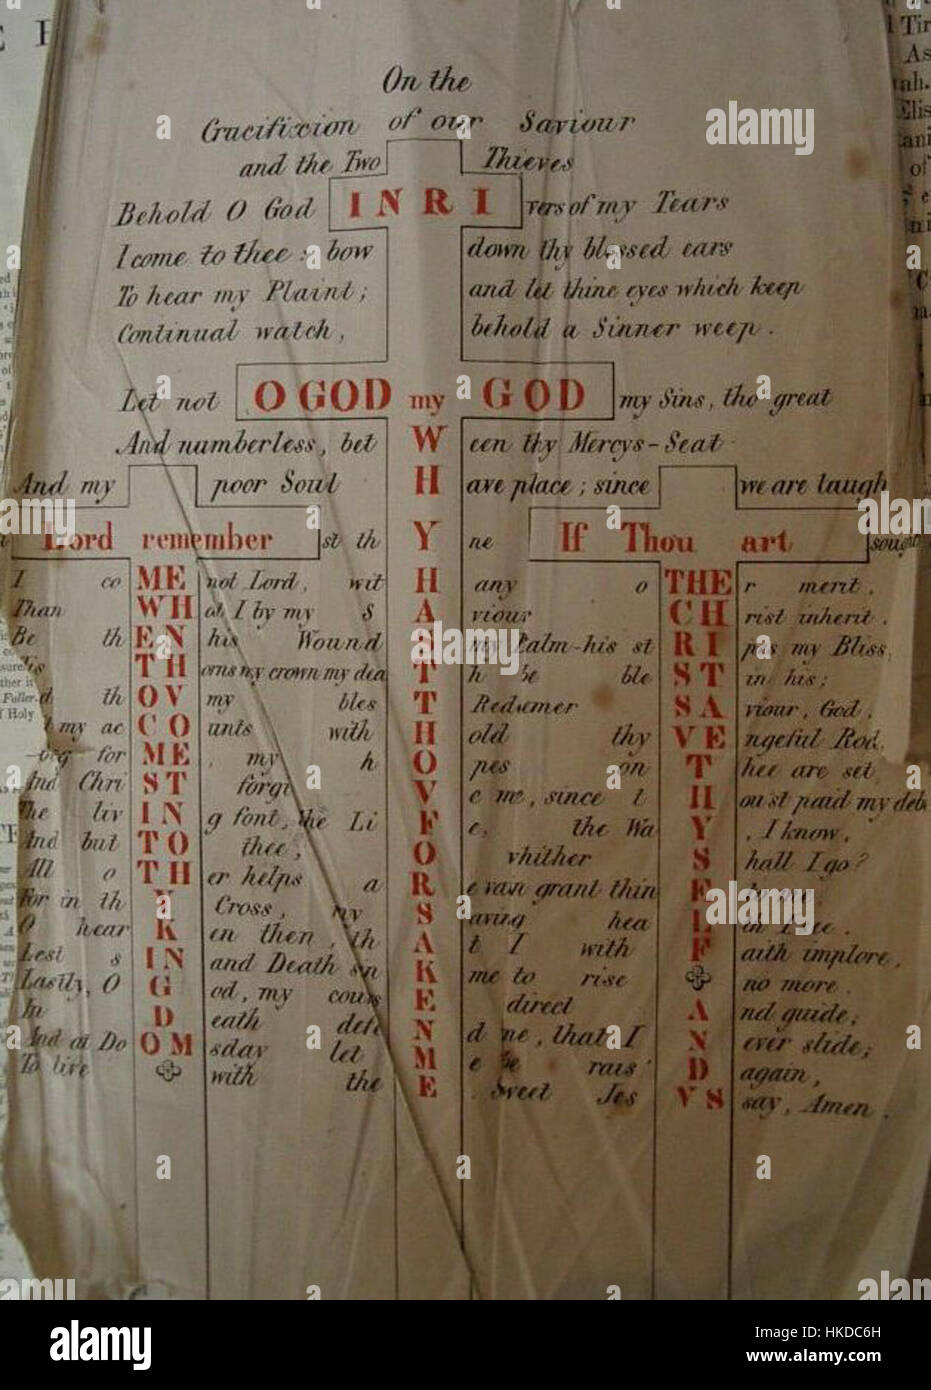 On the
Crucifixion of our Saviour
and the Two Thieves
Behold O God INRI vers of my Tears
I come to thee : bow down thy blessed ears
To hear my Plaint; and let thine eyes which keep
Continual watch, behold a Sinner weep.
Let not O GOD my GOD my Sins, tho great
And numberless, bet W een thy Mercys-Seat
And my poor Soul H ave place ; since we are taugh
Lord remember st th Y ne If Thou art sought
I co ME not Lord, wit H any o THE r merit,
Than WH at I by my S A viour CH rist inherit.
Be th EN his Wound S my Balm-his st RI pes my Bliss,
is TH orns my crown my dea T h be ble ST in his;
d th OV my bles T Redeemer SA viour, God,
t my ac CO unts with H old thy VE ngeful Rod,
for ME , my h O pes on T hee are set,
And Chri ST forgi V e me, since t H ou'st paid my deb
The liv IN g font, the Li F e, the Wa Y , I know,
And but TO thee, O whither S hall I go?
All o TH er helps a R e vain grant thin E to me,
For in th Y Cross, my S aving hea L th I see.
O hear K en then, th A t I with F aith implore,
Lest s IN and Death sin K me to rise no more.
Lastly, O G od, my cours E direct A nd guide;
In D eath defe N d me, that I N ever slide;
And at Do OM sday let M e be rais' D again,
To live with the E . Sweet Jes VS say, Amen.
alamy
alamy stock photo
HKDC6H
www.alamy.com